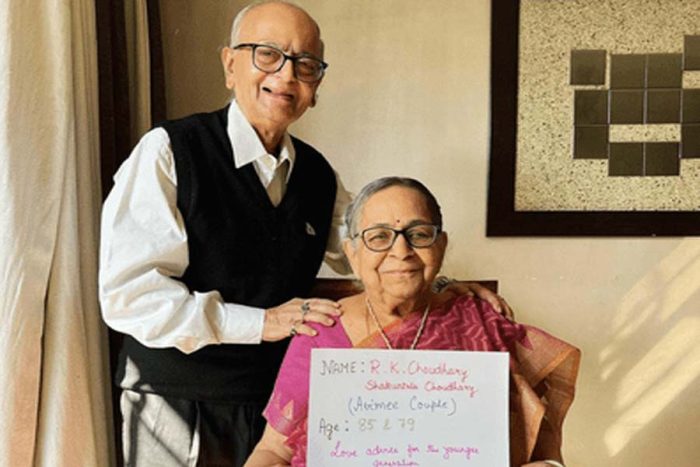 NAME: R.K. Choudhary
Shakuntala Choudhary
(Avimee Couple)
Age: 85 & 79
Love advice for the younger
generation